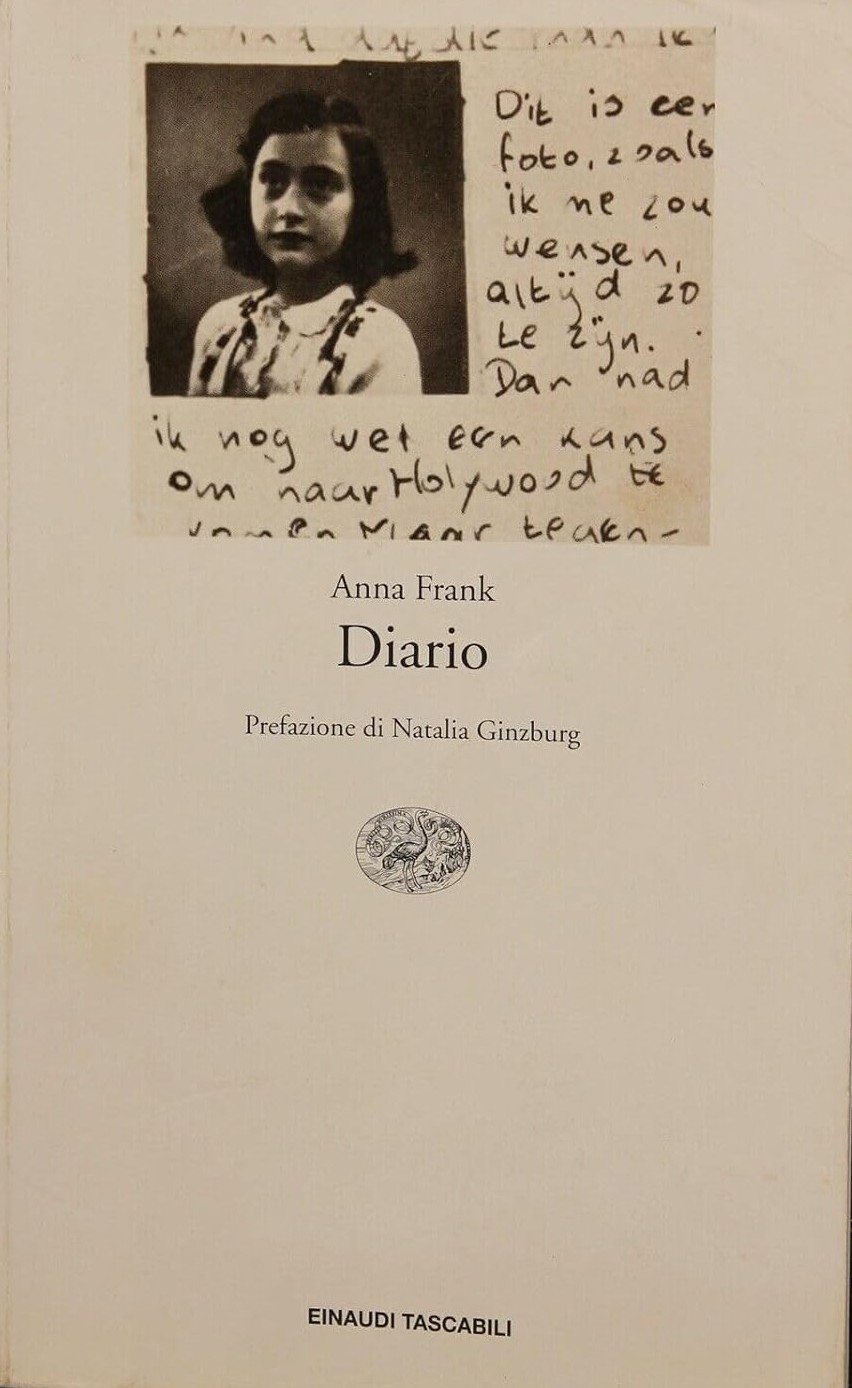 Dit is een
foto, zoals
ik me zou
wensen,
altijd zo
te zijn.
Dan had
ik nog wel een kans
om naar Holywood te
Anna Frank
Diario
Prefazione di Natalia Ginzburg
EINAUDI TASCABILI